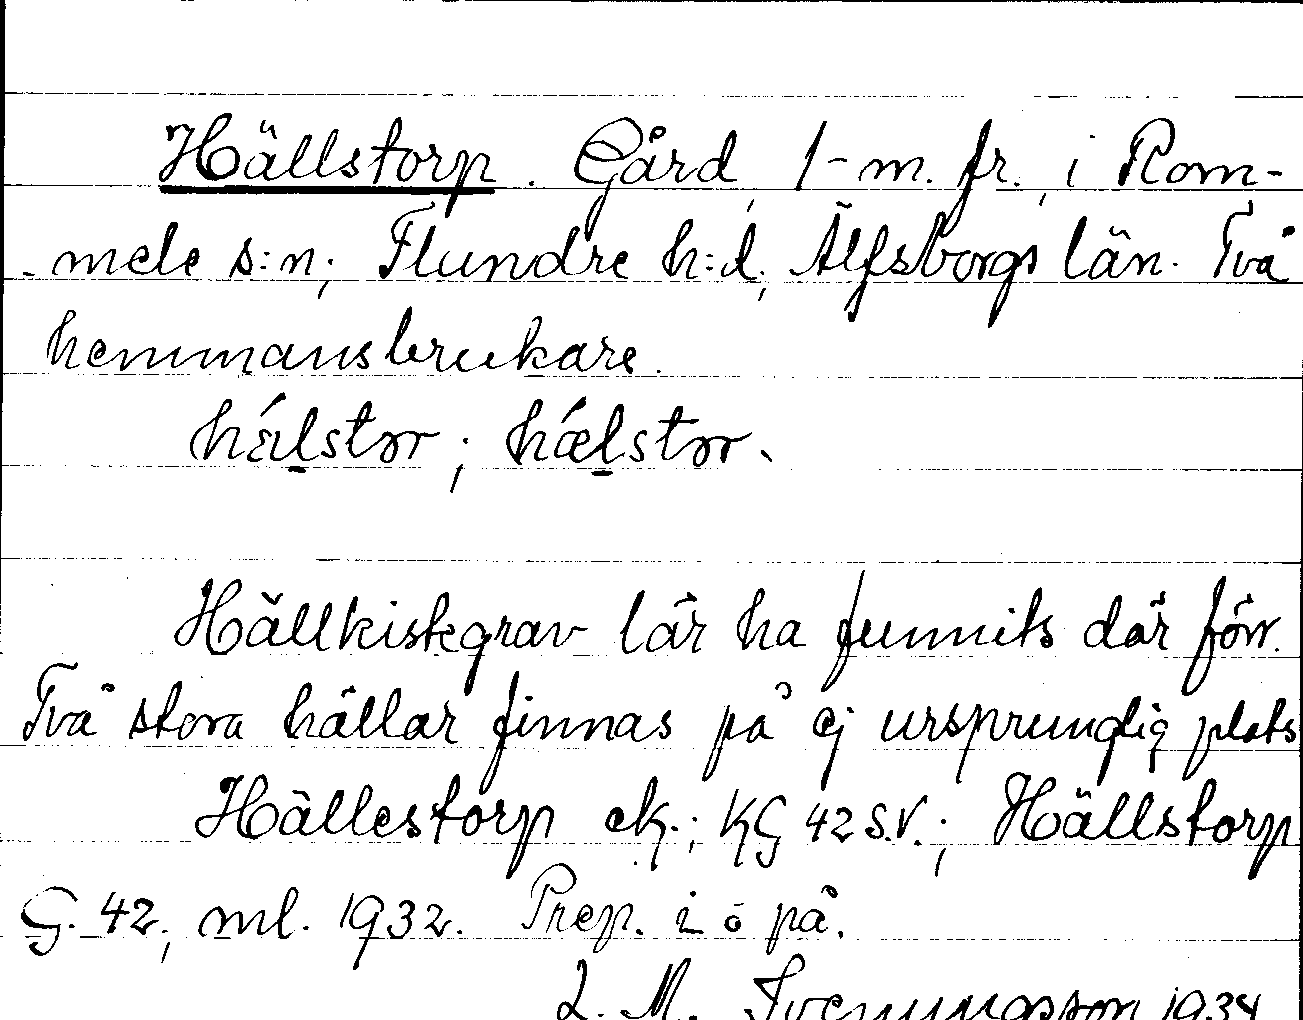 Hällstorp. Gård, 1-m. fr., i Rom-
-mele s:n; Flundre h:d; Älfsborgs län. Två
hemmansbrukare.
hálstor; hǽlstor.
Hällkistegrav lär ha funnits där förr.
Två stora hällar finnas på ej ursprunglig plats
Hällestorp ek.; KG 42 S.V.; Hällstorp
G. 42, ml. 1932. Prep. i o på.
L. M. Svenungsson 1934